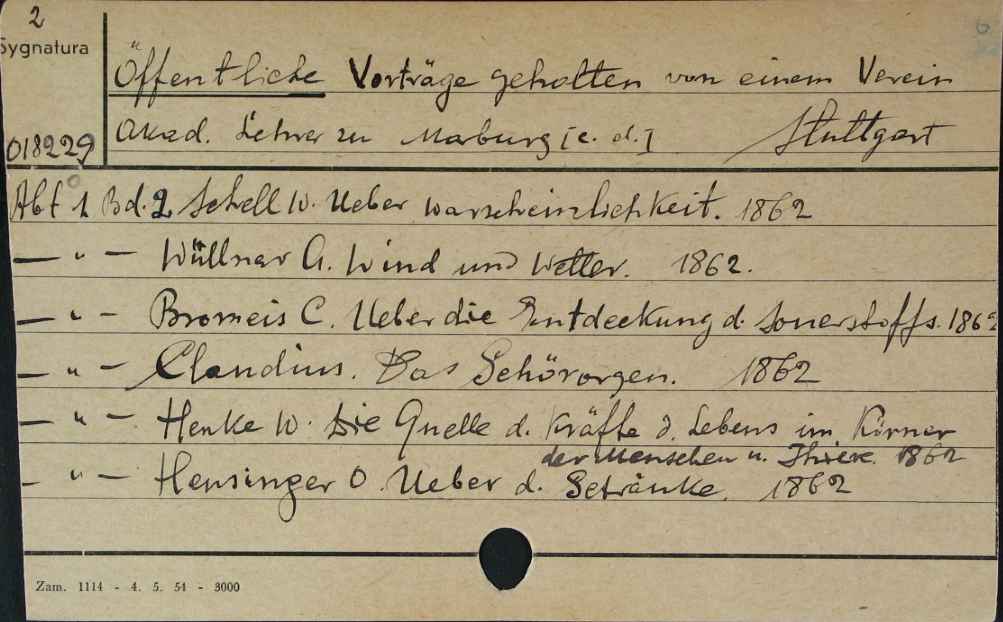 2
Sygnatura
Öffentliche Vorträge gehalten von einem Verein
018229 Akad. Lehrer zu Marburg [e. d.] Stuttgart
Abt 1 Bd. 2 Schell W. Ueber warscheinlichkeit. 1862
— " — Wüllner A. Wind und Wetter. 1862.
— " — Bromeis C. Ueber die Entdeckung d. Sonerstoffs. 1862
— " — Claudius. Das Gehörorgen. 1862
— " — Henke W. Die Quelle d. Kräfte d. Lebens im Körner
der Menschen u. Thiere. 1862
— " — Hensinger O. Ueber d. Getränke. 1862
Zam. 1114 - 4. 5. 51 - 3000